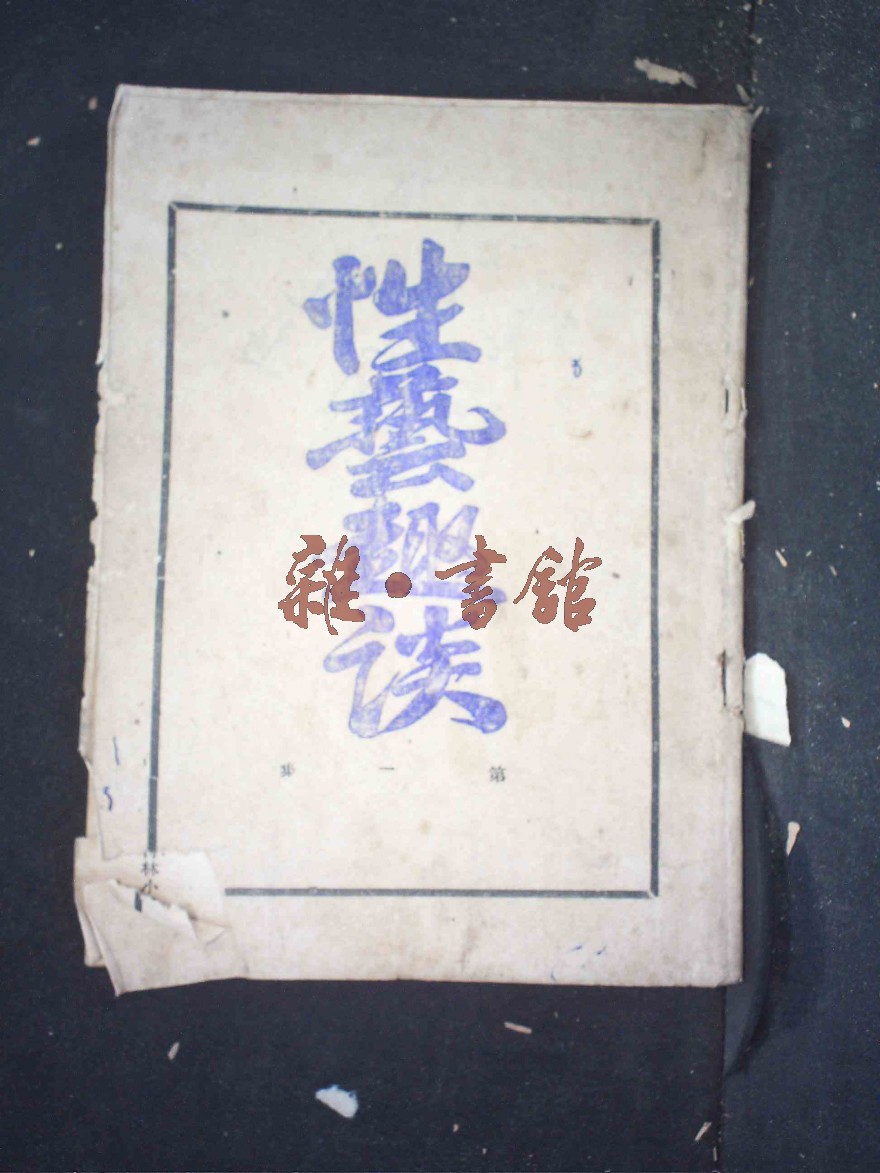 性藝趣談
雜·書館
第一集
林小